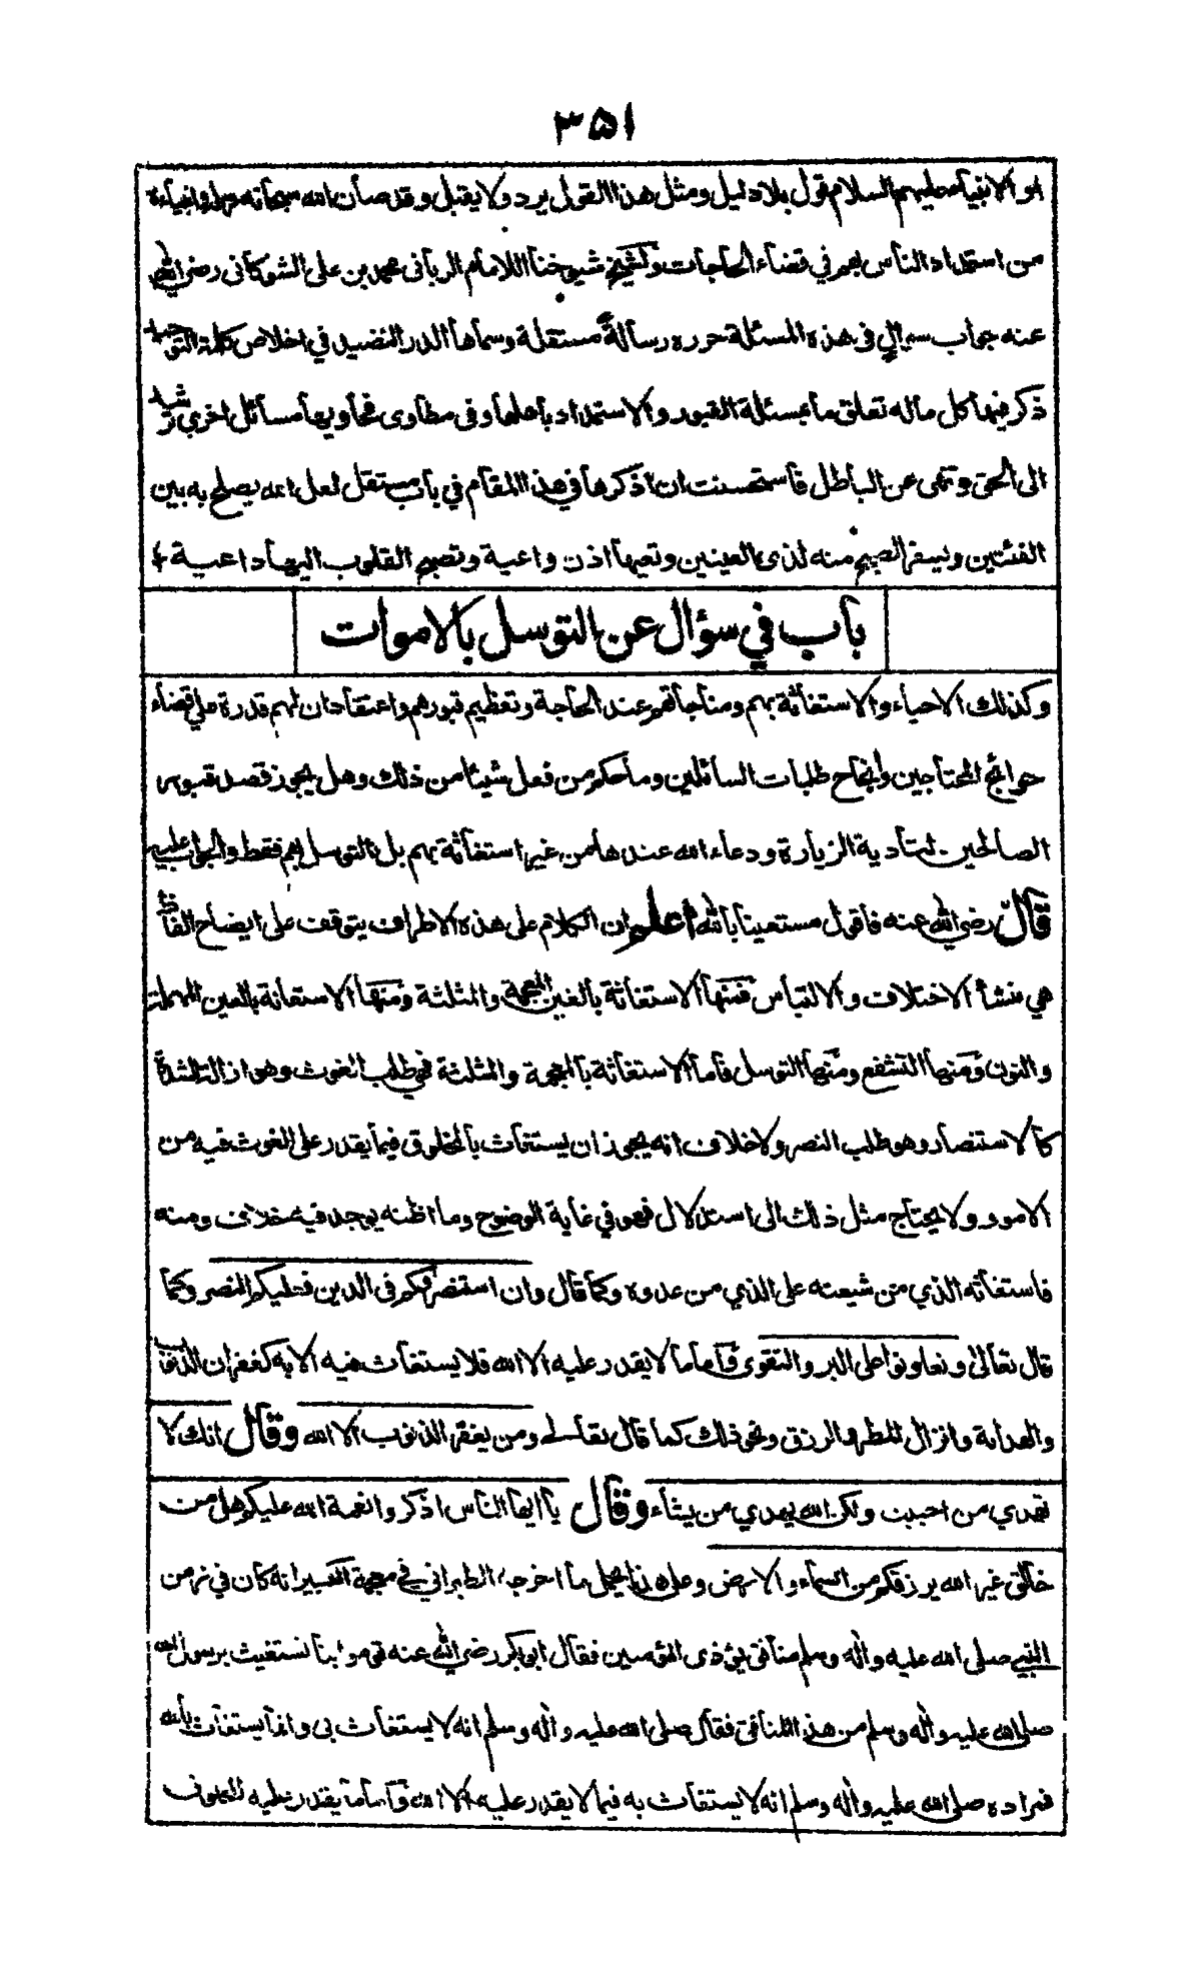 ٣٥١
او الانبياء عليهم السلام قول بلا دليل ومثل هذا القول يرد ولا يقبل وقد صان الله سبحانه رسله وانبياءه
من استمداد الناس بهم في قضاء الحاجات ولشيخ شيوخنا الامام الرباني محمد بن علي الشوكاني رضي الله
عنه جواب سؤالٍ في هذه المسئلة حرره رسالةً مستقلة وسماها الدر النضيد في اخلاص كلمة التوحيد
ذكر فيها كل ماله تعلق ما بمسئلة القبور والاستمداد باهلها وفي مطاوى فحاويها مسائل اخرى ترشد
الى الحق وتنهى عن الباطل فاستحسنت ان اذكرها في هذا المقام في باب مستقل لعل الله يصلح به بين
الفئتين ويسفر الصبح منه لذى العينين وتعيها اذن واعية وتصبح القلوب اليها داعية
باب في سؤال عن التوسل بالاموات
وكذلك الاحياء والاستغاثة بهم ومناجاتهم عند الحاجة وتعظيم قبورهم واعتقاد ان لهم قدرة على قضاء
حوائج المحتاجين وانجاح طلبات السائلين وما حكم من فعل شيئا من ذلك وهل يجوز قصد قبور
الصالحين لتأدية الزيارة ودعاء الله عندها من غير استغاثة بهم بل بالتوسل بهم فقط والجواب عليه
قال رضي الله عنه فاقول مستعينا بالله اعلم ان الكلام على هذه الاطراف يتوقف على ايضاح الفاظ
هي منشأ الاختلاف والالتباس فمنها الاستغاثة بالغين المعجمة والمثلثة ومنها الاستعانة بالعين المهملة
والنون ومنها التشفع ومنها التوسل فاما الاستغاثة بالمعجمة والمثلثة فهي طلب الغوث وهو ازالة الشدة
كالاستنصار وهو طلب النصر ولا خلاف انه يجوز ان يستغاث بالمخلوق فيما يقدر على الغوث فيه من
الامور ولا يحتاج مثل ذلك الى استدلال فهو في غاية الوضوح وما اظنه يوجد فيه خلاف ومنه
فاستغاثه الذي من شيعته على الذي من عدوه وكما قال وان استنصروكم في الدين فعليكم النصر وكما
قال تعالى وتعاونوا على البر والتقوى فاما ما لا يقدر عليه الا الله فلا يستغاث فيه الا به كغفران الذنوب
والهداية وانزال المطر والرزق ونحو ذلك كما قال تعالى ومن يغفر الذنوب الا الله وقال انك لا
تهدي من احببت ولكن الله يهدي من يشاء وقال يا ايها الناس اذكروا نعمة الله عليكم هل من
خالق غير الله يرزقكم من السماء والارض وعلى هذا يحمل ما اخرجه الطبراني في معجمه الكبير انه كان في زمن
النبي صلى الله عليه واٰله وسلم منافق يؤذى المؤمنين فقال ابو بكر رضي الله عنه قوموا بنا نستغيث برسول الله
صلى الله عليه واٰله وسلم من هذا المنافق فقال صلى الله عليه واٰله وسلم انه لا يستغاث بى وانما يستغاث بالله
فمراده صلى الله عليه واٰله وسلم انه لا يستغاث به فيما لا يقدر عليه الا الله واما ما يقدر عليه المخلوق